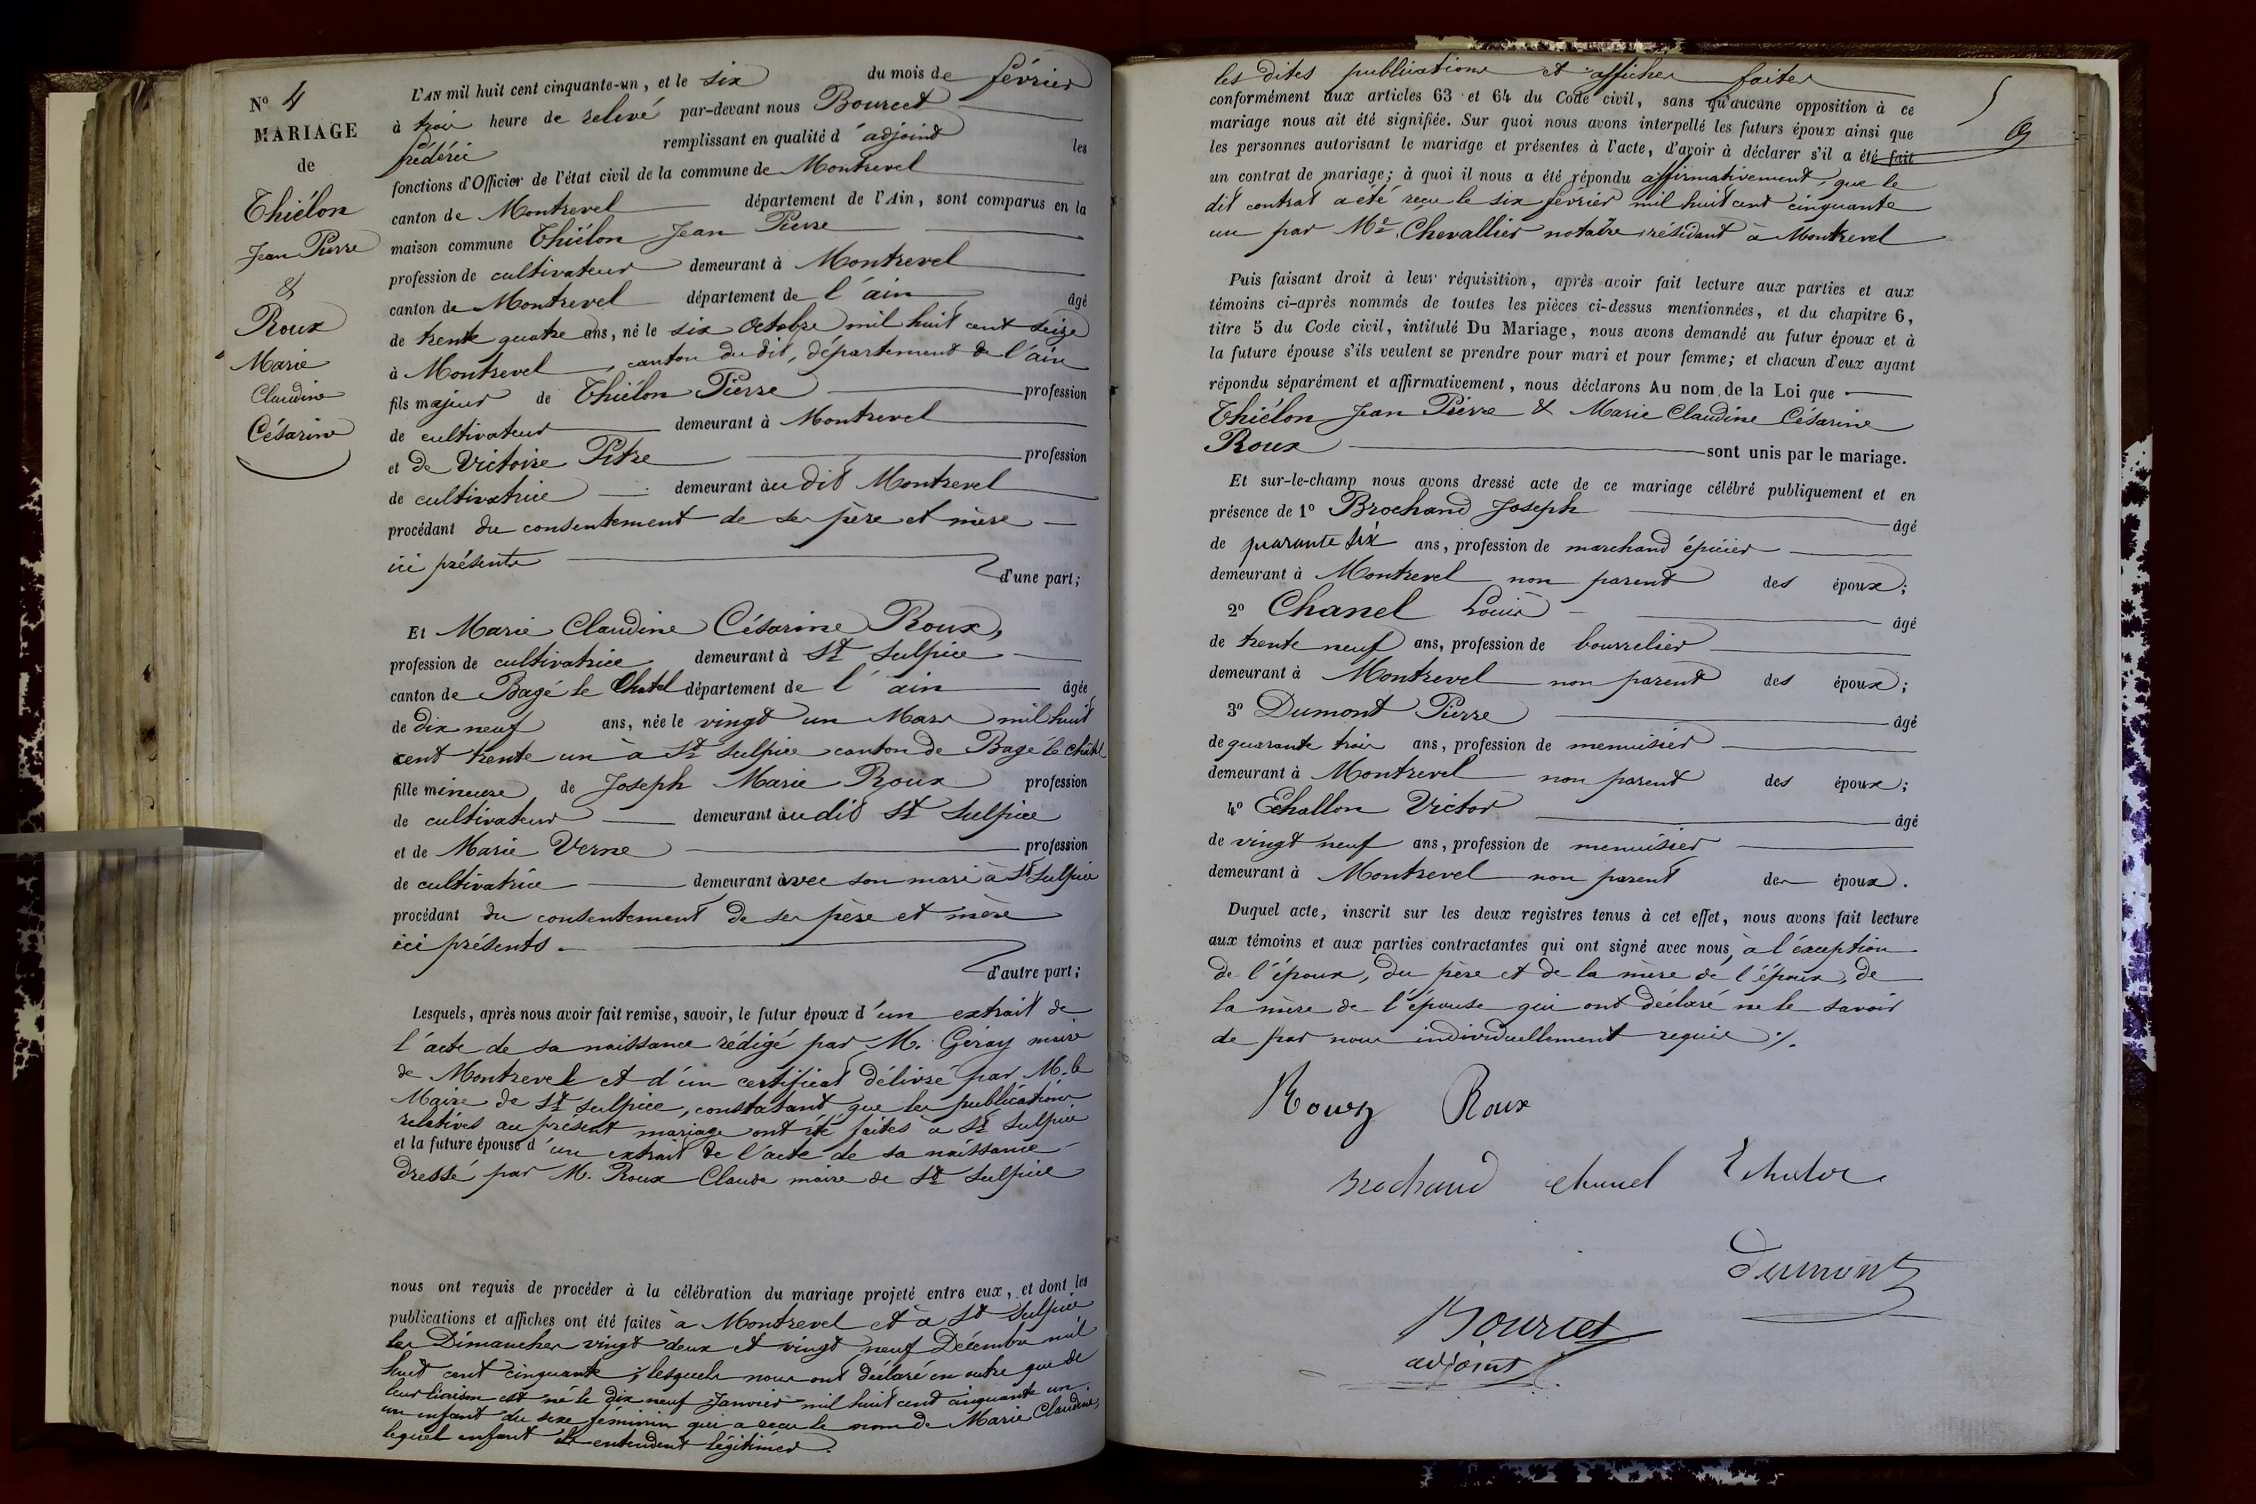 N° 4
MARIAGE
de
Thiélon
Jean Pierre
&
Roux
Marie
Claudine
Césarine
L'AN mil huit cent cinquante-un, et le six du mois de février
à trois heure de relevé par-devant nous Bourcet
frédéric remplissant en qualité d'adjoint les
fonctions d'Officier de l'état civil de la commune de Montrevel
canton de Montrevel département de l'Ain, sont comparus en la
maison commune Thiélon Jean Pierre
profession de cultivateur demeurant à Montrevel
canton de Montrevel département de l'ain âgé
de trente quatre ans, né le six Octobre mil huit cent seize
à Montrevel, canton du dit, département de l'ain
fils majeur de Thiélon Pierre profession
de cultivateur demeurant à Montrevel
et de Victoire Pitre profession
de cultivatrice demeurant audit Montrevel
procédant du consentement de ses père et mère
ici présents
d'une part;
Et Marie Claudine Césarine Roux,
profession de cultivatrice demeurant à St Sulpice
canton de Bagé le Chatel département de l'ain âgée
de dix neuf ans, née le vingt un Mars mil huit
cent trente un à St Sulpice canton de Bagé le Châtel
fille mineure de Joseph Marie Roux profession
de cultivateur demeurant audit St Sulpice
et de Marie Verne profession
de cultivatrice demeurant avec son mari à St Sulpice
procédant du consentement de ses père et mère
ici présents.
d'autre part;
Lesquels, après nous avoir fait remise, savoir, le futur époux d'un extrait de
l'acte de sa naissance rédigé par M. Géray maire
de Montrevel et d'un certificat délivré par M. le
Maire de St Sulpice, constatant que les publications
relatives au présent mariage ont été faites à St Sulpice
et la future épouse d'un extrait de l'acte de sa naissance
dressé par M. Roux Claude maire de St Sulpice
nous ont requis de procéder à la célébration du mariage projeté entre eux, et dont les
publications et affiches ont été faites à Montrevel et à St Sulpice
les Dimanches vingt deux et vingt neuf Décembre mil
huit cent cinquante; lesquels nous ont déclaré en outre que de
leur liaison est né le dix neuf Janvier mil huit cent cinquante un
un enfant du sexe féminin qui a reçu le nom de Marie Claudine,
lequel enfant ils entendent légitimer.
les dites publications et affiches faites
conformément aux articles 63 et 64 du Code civil, sans qu'aucune opposition à ce
mariage nous ait été signifiée. Sur quoi nous avons interpellé les futurs époux ainsi que
les personnes autorisant le mariage et présentes à l'acte, d'avoir à déclarer s'il a été fait
un contrat de mariage; à quoi il nous a été répondu affirmativement, que le
dit contrat a été reçu le six février mil huit cent cinquante
un par Me Chevallier notaire résidant à Montrevel
Puis faisant droit à leur réquisition, après avoir fait lecture aux parties et aux
témoins ci-après nommés de toutes les pièces ci-dessus mentionnées, et du chapitre 6,
titre 5 du Code civil, intitulé Du Mariage, nous avons demandé au futur époux et à
la future épouse s'ils veulent se prendre pour mari et pour femme; et chacun d'eux ayant
répondu séparément et affirmativement, nous déclarons Au nom de la Loi que
Thiélon Jean Pierre & Marie Claudine Césarine
Roux sont unis par le mariage.
Et sur-le-champ nous avons dressé acte de ce mariage célébré publiquement et en
présence de 1° Brochand Joseph âgé
de quarante six ans, profession de marchand épicier
demeurant à Montrevel non parent des époux;
2° Chanel Louis âgé
de trente neuf ans, profession de bourrelier
demeurant à Montrevel non parent des époux;
3° Dumont Pierre âgé
de quarante trois ans, profession de menuisier
demeurant à Montrevel non parent des époux;
4° Echallon Victor âgé
de vingt neuf ans, profession de menuisier
demeurant à Montrevel non parent des époux.
Duquel acte, inscrit sur les deux registres tenus à cet effet, nous avons fait lecture
aux témoins et aux parties contractantes qui ont signé avec nous, à l'éxception
de l'époux, du père et de la mère de l'époux, de
la mère de l'épouse qui ont déclaré ne le savoir
de par nous individuellement requis
Roux
brochand chanel
Dumont
Bourcet
adjoint